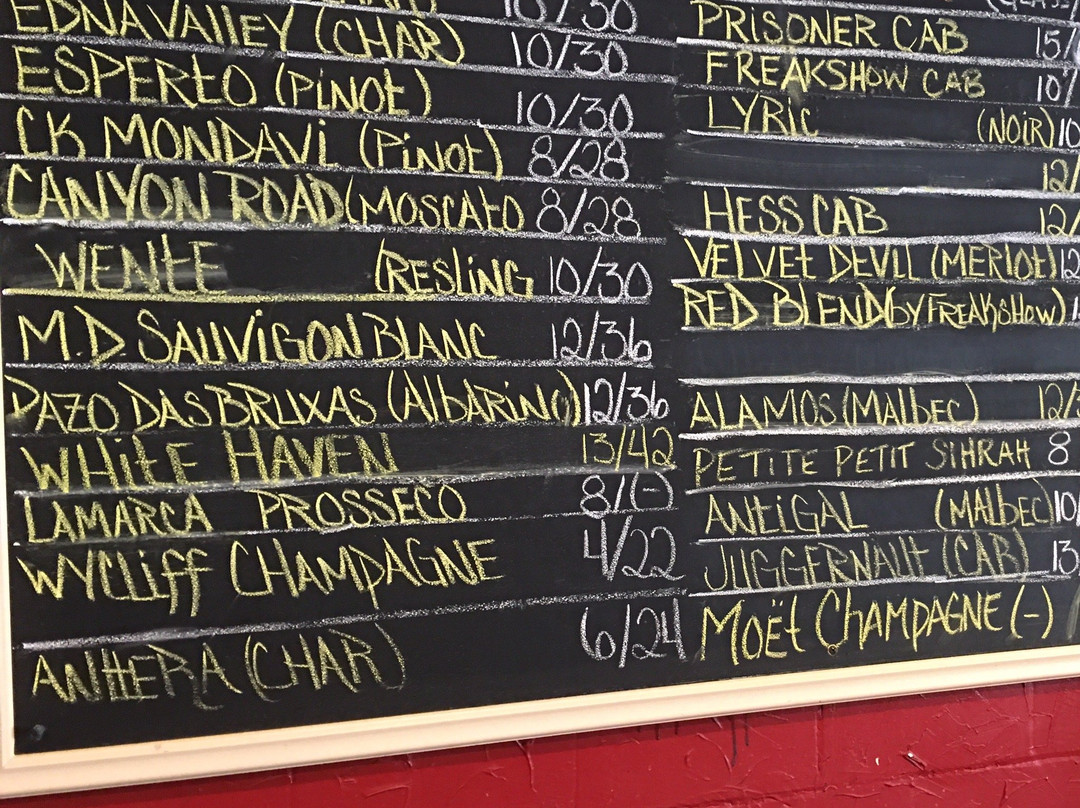 10/30
EDNA VALLEY (CHAR) 10/30
ESPERTO (PINOT) 10/30
CK MONDAVI (PINOT) 8/28
CANYON ROAD (MOSCATO 8/28
WENTE (RESLING 10/30
M.D SAUVIGON BLANC 12/36
PAZO DAS BRUXAS (AlbARINO) 12/36
WHITE HAVEN 13/42
LAMARCA PROSSECO 8/(-)
WYCLIFF CHAMPAGNE 4/22
ANTERA (CHAR) 6/24
PRISONER CAB 15/
FREAKSHOW CAB 10/
LYRIC (NOIR) 10
12/
HESS CAB 12/
VELVET DEVIL (MERLOT) 12
RED BLEND (by FREAKSHOW) 1
ALAMOS (MALbEC) 12/
PETITE PETIT SIHRAH 8
ANTIGAL (MALbEC) 10/
JUGGERNAUT (CAB) 13
MOËT CHAMPAGNE (-)